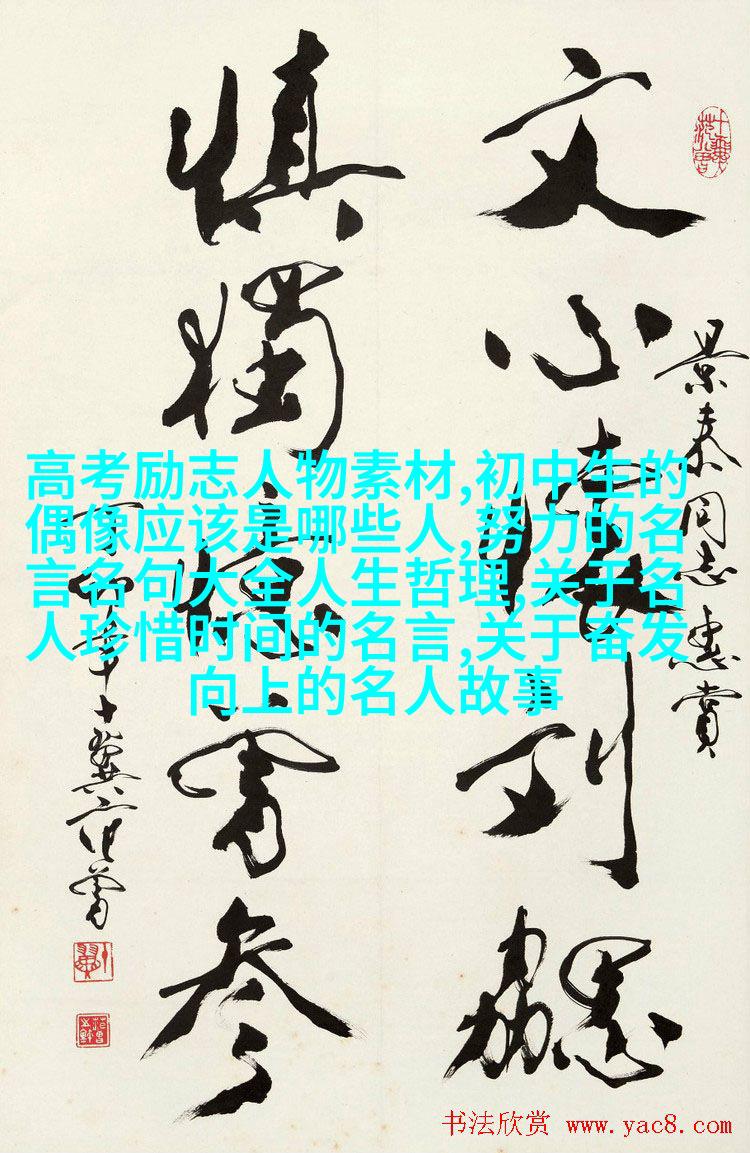 景泰同志惠賞
文心刘勰
慎獨憶曾參
十翼范曾
高考励志人物素材,初中生的
偶像应该是哪些人,努力的名
言名句大全人生哲理,关于名
人珍惜时间的名言,关于奋发
向上的名人故事
书法欣赏 www.yac8.com